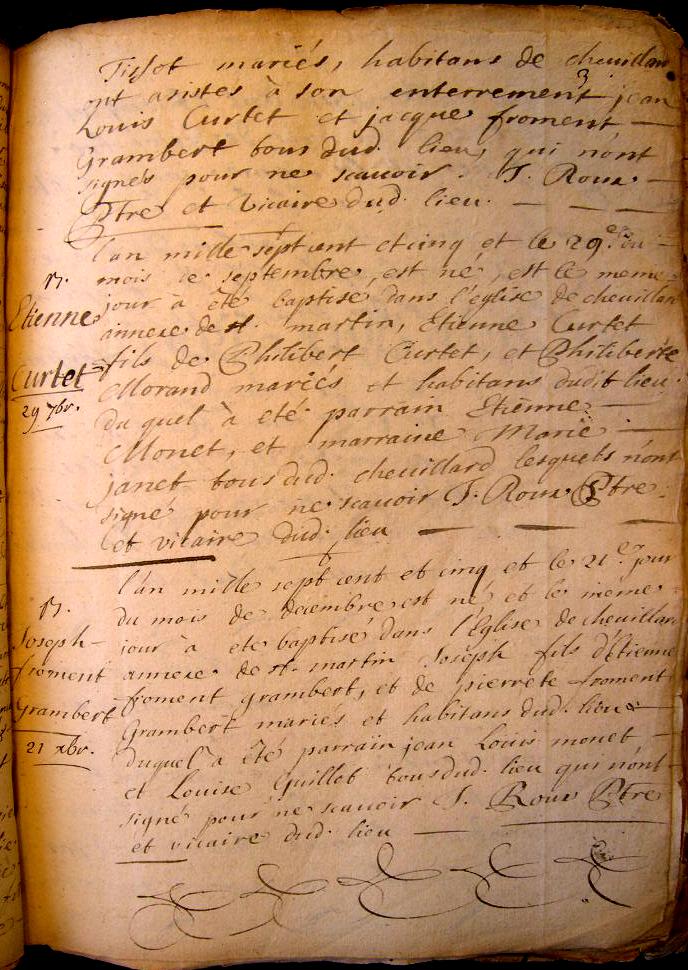 Tissot mariés, habitans de cheuillar
ont asistés à son enterrement jean
3
Louis Curtet et jacque froment —
Grambert tous dud. lieu, qui n'ont
signés pour ne scauoir. J. Roux —
Ptre et Vicaire dud. lieu. — — —
l'an mille sept cent et cinq et le 29e du —
mois de septembre, est né, est le meme
jour à èté baptisé dans l'eglise de cheuillar
annexe de st. martin, Etienne Curtet
fils de Philibert Curtet, et Philiberte
Morand mariés et habitans dudit lieu
du quel à eté parrain Etienne —
Monet, et marraine Marie —
janet tous dud. cheuillard lesquels n'ont
signé pour ne scauoir J. Roux Ptre
et vicaire dud. lieu — — —
n.
Etienne
Curtet
29 7br.
l'an mille sept cent et cinq et le 21e jour
du mois de decembre est né et le meme
jour à eté baptisé dans l'Eglise de cheuillar
annexe de st. martin Joseph fils d'Étienne
froment grambert, et de pierrete froment
Grambert mariés et habitans dud. lieu —
duquel à èté parrain jean Louis monet —
et Louise Guillot tous dud. lieu qui n'ont
signé pour ne scauoir J. Roux Ptre
et vicaire dud. lieu —
n.
Joseph —
froment
Grambert
21 xbr.